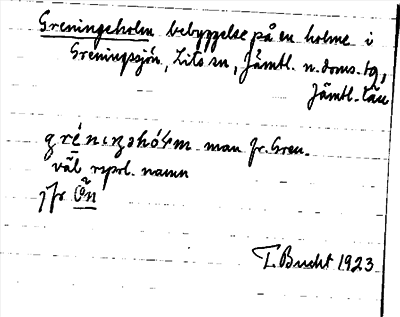 Greningeholm bebyggelse på en holme i
Greningssjön, Lits sn, Jämtl. n. doms. tg,
Jämtl. län
man fr. Gren.
väl rspr. namn
jfr Ön
T. Bucht 1923